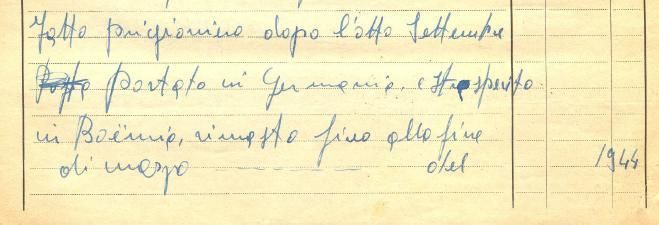 Fatto prigioniero dopo l'otto Settembre
Portato in Germania, e trasferito
in Boëmia, rimasto fino alla fine
di marzo - - - - - - - del 1944